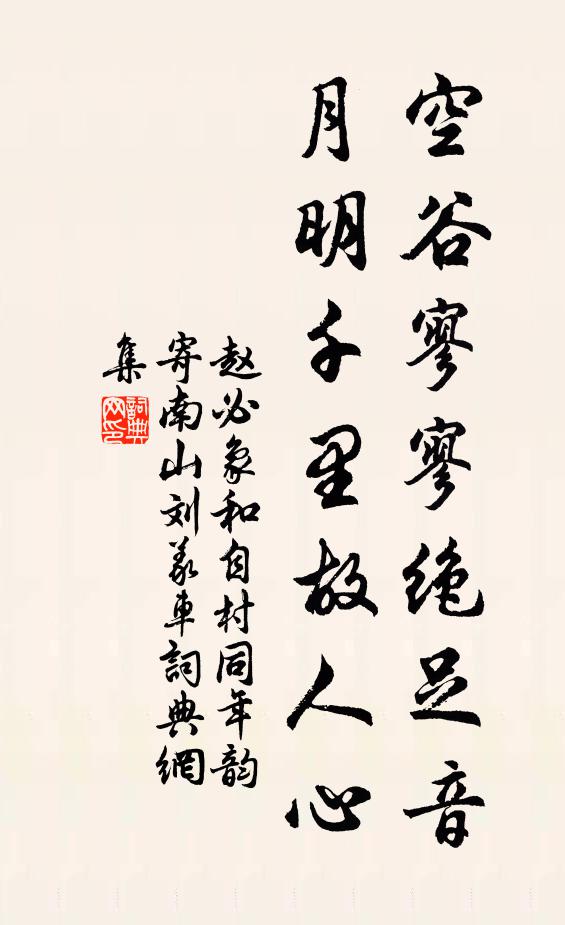 空谷寥寥绝足音
月明千里故人心
赵必象和自村同年韵
寄南山刘义车詞典網
集
詞典网印